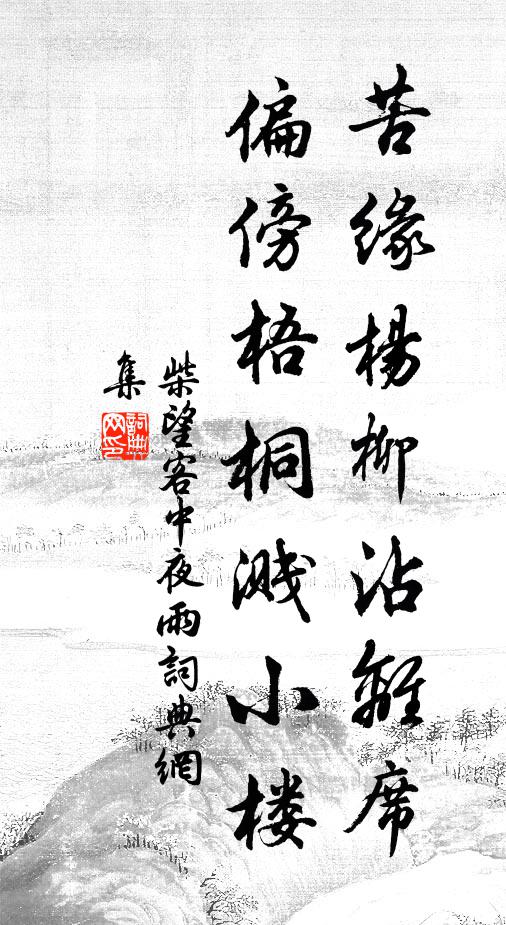 苦缘楊柳沾離席
偏傍梧桐溅小楼
柴望客中夜雨詞典網
集
詞典网印